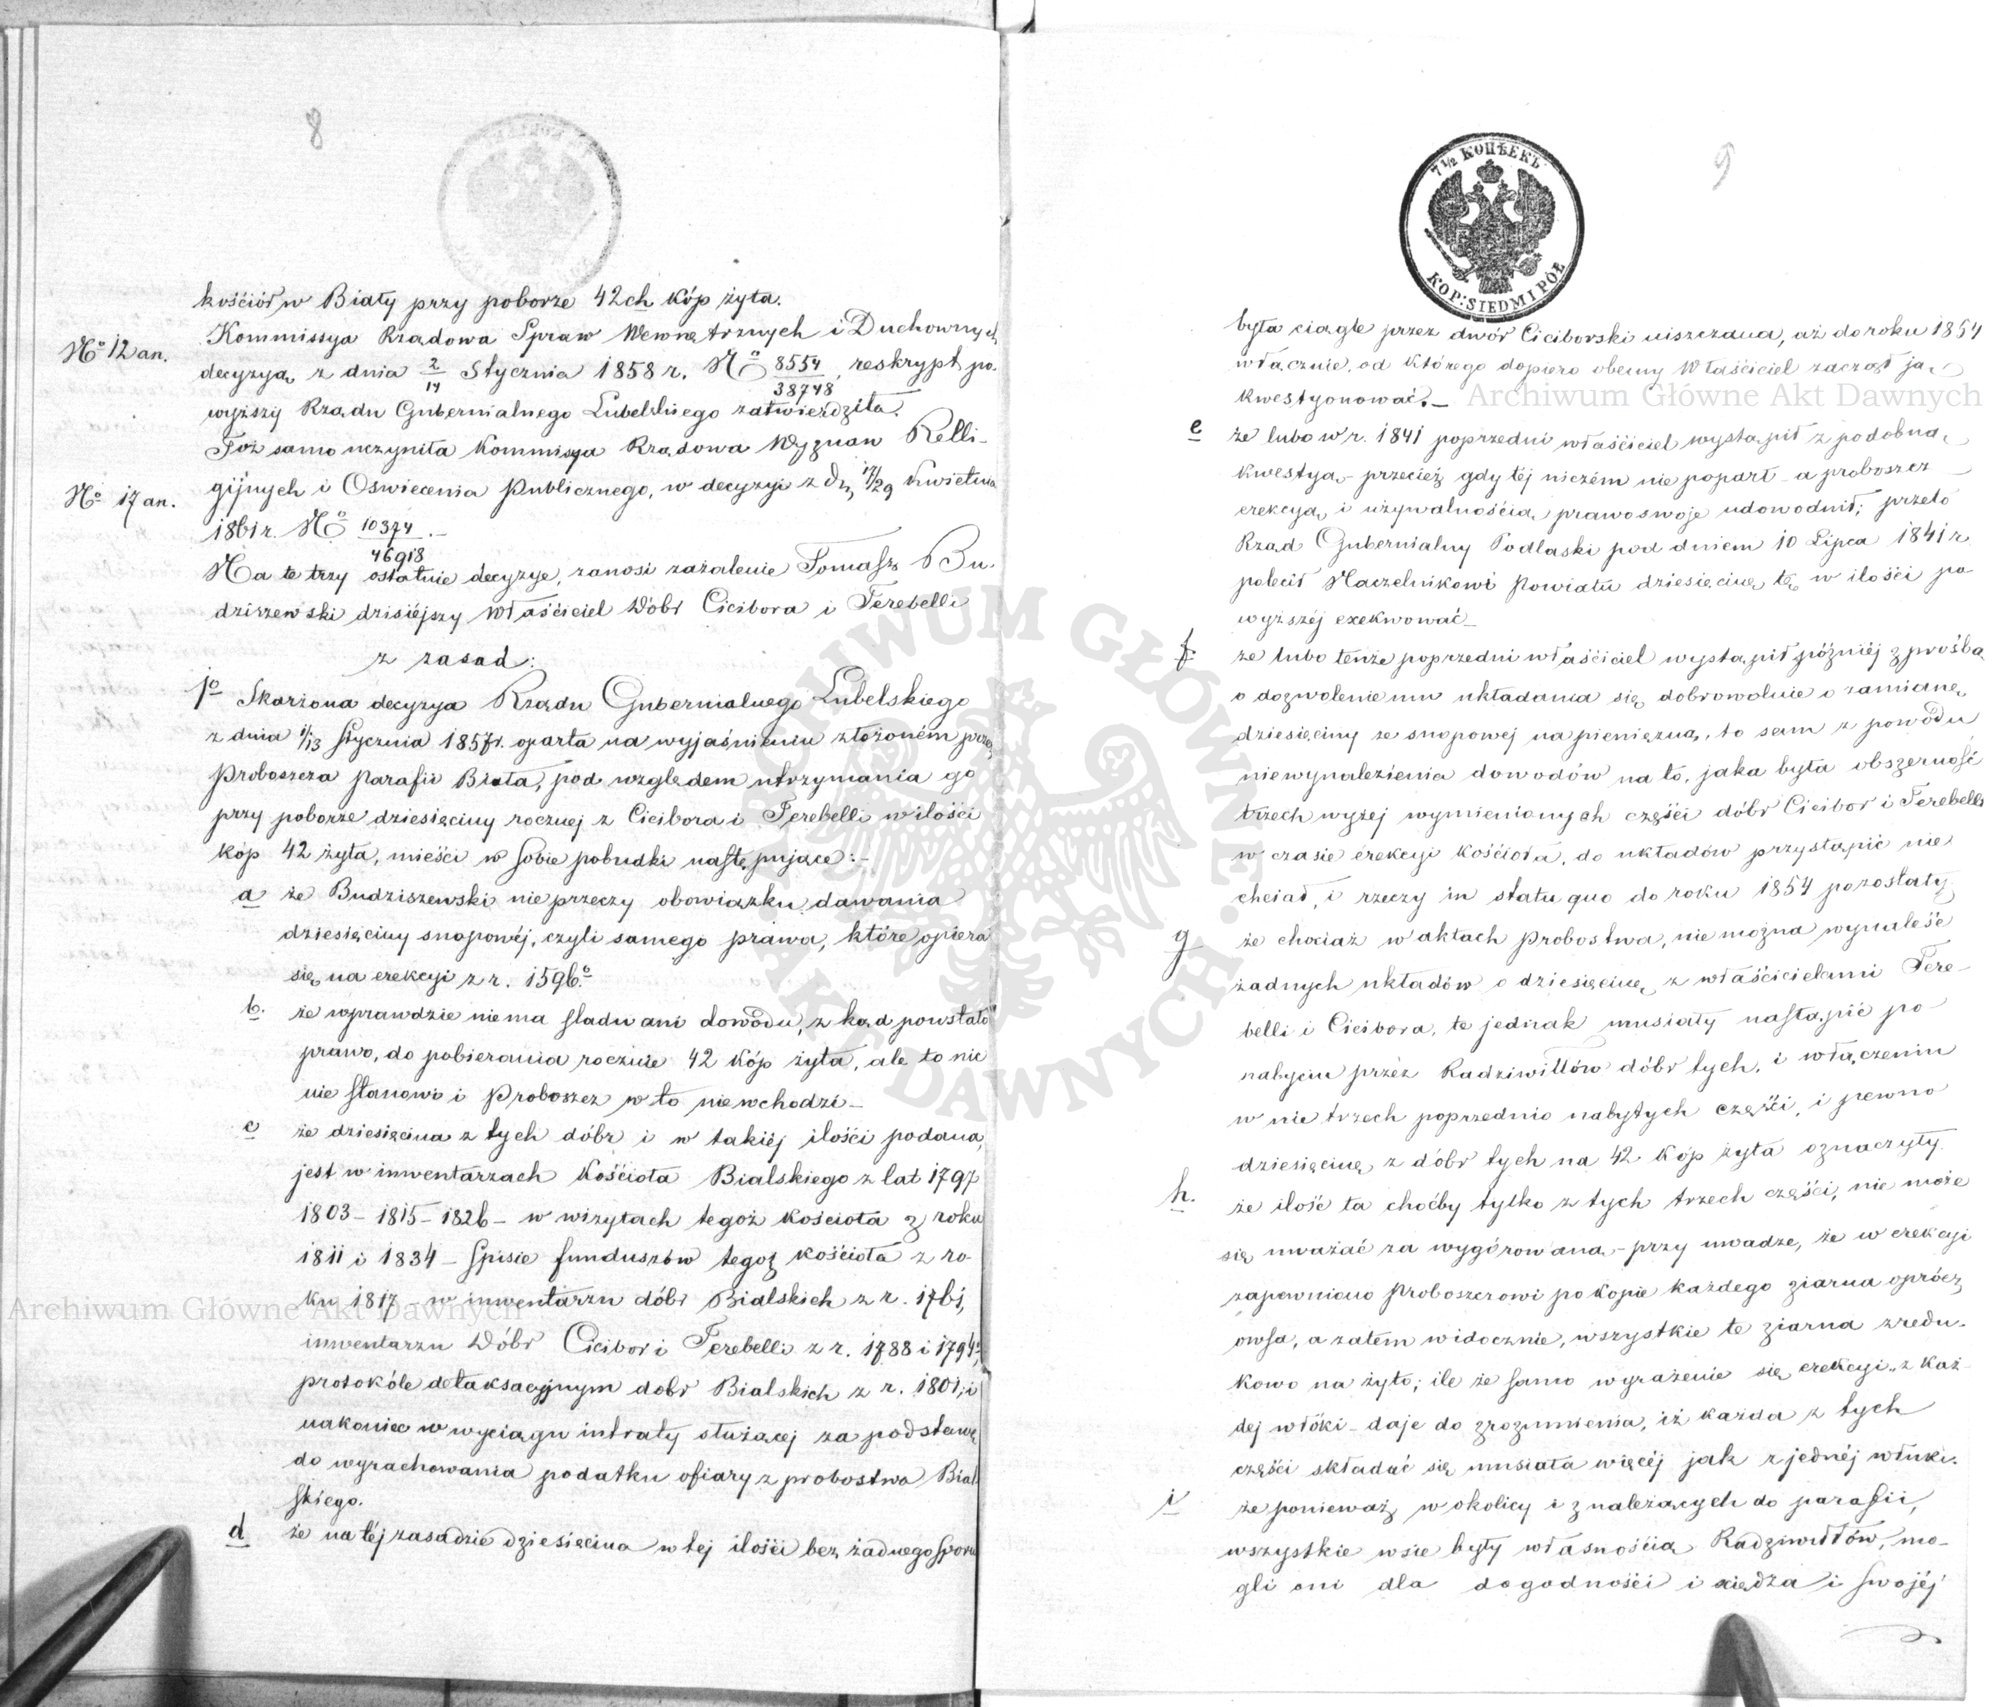 8
kościół w Biały przy poborze 42ch kóp żyta.
Kommissya Rządowa Spraw Wewnętrznych i Duchownych
No 12 an.
decyzyą z dnia 2/14 Stycznia 1858 r. No 8554/38748, reskrypt po-
wyższy Rządu Gubernialnego Lubelskiego zatwierdziła.
Toż samo uczyniła Kommissya Rządowa Wyznań Relli-
No 17 an.
gijnych i Oświecenia Publicznego, w decyzyi z dn. 17/29 Kwietnia
1861 r. No 10374/46918.-
Na te trzy ostatnie decyzye, zanosi zażalenie Tomasz Bu-
dziszewski dzisiéjszy Właściciel Dóbr Cicibora i Terebelli
z zasad:
1o Skarżona decyzya Rządu Gubernialnego Lubelskiego
z dnia 1/13 Stycznia 1857 r. oparta na wyjaśnieniu złożoném przez
Proboszcza parafii Biała, pod względem utrzymania go
przy poborze dziesięciny rocznej z Cicibora i Terebelli w ilości
kóp 42 żyta, mieści w sobie pobudki następujące:-
a że Budziszewski nie przeczy obowiązku dawania
dziesięciny snopowéj, czyli samego prawa, które opiera
się na erekcyi z r. 1596o
b. że wprawdzie niema śladu ani dowodu, z kąd powstało
prawo, do pobierania rocznie 42 kóp żyta, ale to nic
nie stanowi i Proboszcz w to nie wchodzi_
c że dziesięcina z tych dóbr i w takiéj ilości podana,
jest w inwentarzach Kościoła Bialskiego z lat 1797
1803 - 1815 - 1826 - w wizytach tegoż kościoła z roku
1811 i 1834 - Spisie funduszów tegoż kościoła z ro-
ku 1817 - w inwentarzu dóbr Bialskich z r. 1761,
inwentarzu Dóbr Cicibor i Terebelli z r. 1788 i 1794,
protokóle detaksacyjnym dóbr Bialskich z r. 1801, i
nakoniec w wyciągu intraty służącej za podstawę
do wyrachowania podatku ofiary z probostwa Bial
skiego.
d że na téj zasadzie dziesięcina w tej ilości bez żadnego sporu
9
7½ КОПѢЕКЪ
KOP: SIEDM I PÓŁ
była ciągle przez dwór Ciciborski uiszczana, aż do roku 1854
włącznie, od którego dopiero obecny Właściciel zaczął ją
kwestyonować._
e że lubo w r. 1841 poprzedni właściciel wystąpił z podobną
kwestyą, - przecież gdy téj niczém nie poparł - a proboszcz
erekcyą i używalnością prawo swoje udowodnił; przeto
Rząd Gubernialny Podlaski pod dniem 10 Lipca 1841 r
polecił Naczelnikowi Powiatu dziesięcinę tę w ilości po-
wyższéj exekwować_
f. że lubo tenże poprzedni właściciel wystąpił późniéj z prośbą
o dozwolenie mu układania się dobrowolnie o zamianę
dziesięciny ze snopowej na pieniężną, to sam z powodu
niewynalezienia dowodów na to, jaka była obszerność
trzech wyżej wymienionych części dóbr Cicibor i Terebelli
w czasie erekcyi kościoła, do układów przystąpić nie
chciał, i rzeczy in statu quo do roku 1854 pozostały
g że chociaż w aktach Probostwa, nie można wynaleść
żadnych układów o dziesięcinę z właścicielami Tere-
belli i Cicibora, te jednak musiały nastąpić po
nabyciu przez Radziwiłłów dóbr tych, i włączeniu
w nie trzech poprzednio nabytych części, i pewno
dziesięcinę z dóbr tych na 42 kóp żyta oznaczyły
h. że ilość ta choćby tylko z tych trzech części, nie może
się uważać za wygórowaną - przy uwadze, że w erekcyi
zapewniono Proboszczowi po kopie każdego ziarna oprócz
owsa, a zatem widocznie, wszystkie te ziarna zredu-
kowo na żyto; ile że samo wyrażenie się erekcyi „z każ-
dej włóki - daje do zrozumienia, iż każda z tych
części składać się musiała więcéj jak z jednéj włuki.
i że ponieważ w okolicy i z należących do parafii,
wszystkie wsie były własnością Radziwiłłów, mo-
gli oni dla dogodności i xiędza i swojéj
Archiwum Główne Akt Dawnych
Archiwum Główne Akt Dawnych
ARCHIWUM GŁÓWNE AKT DAWNYCH.